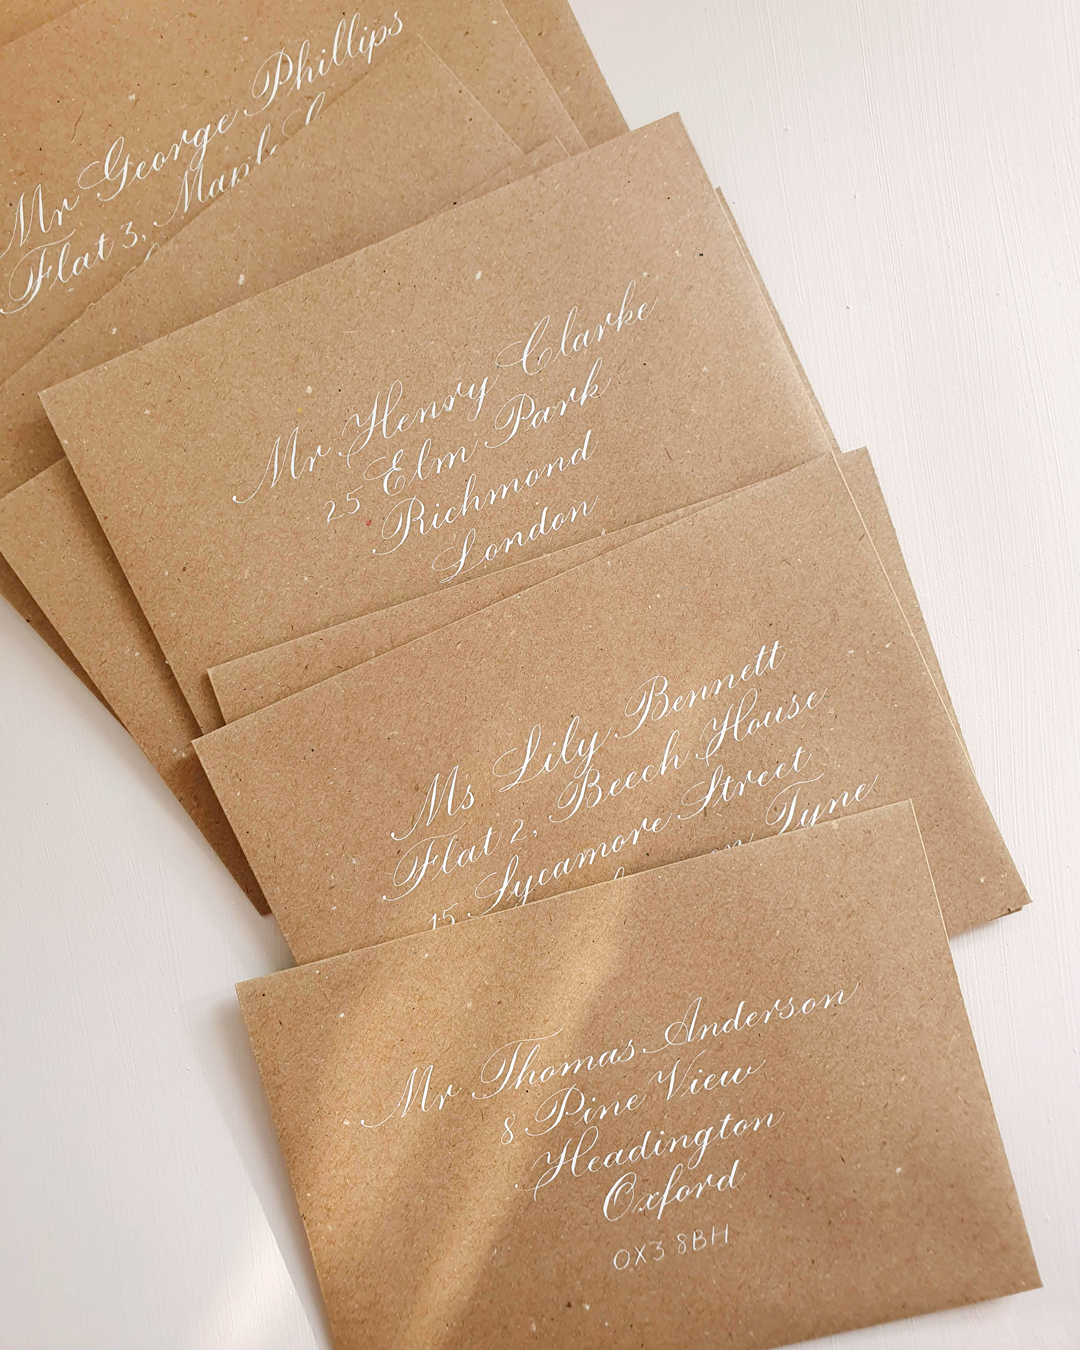 Mr George Phillips
Flat 3, Maple
Mr Henry Clarke
25 Elm Park
Richmond
London
Ms Lily Bennett
Flat 2, Beech House
15 Sycamore Street
Tyne
Mr Thomas Anderson
8 Pine View
Headington
Oxford
OX3 8BH